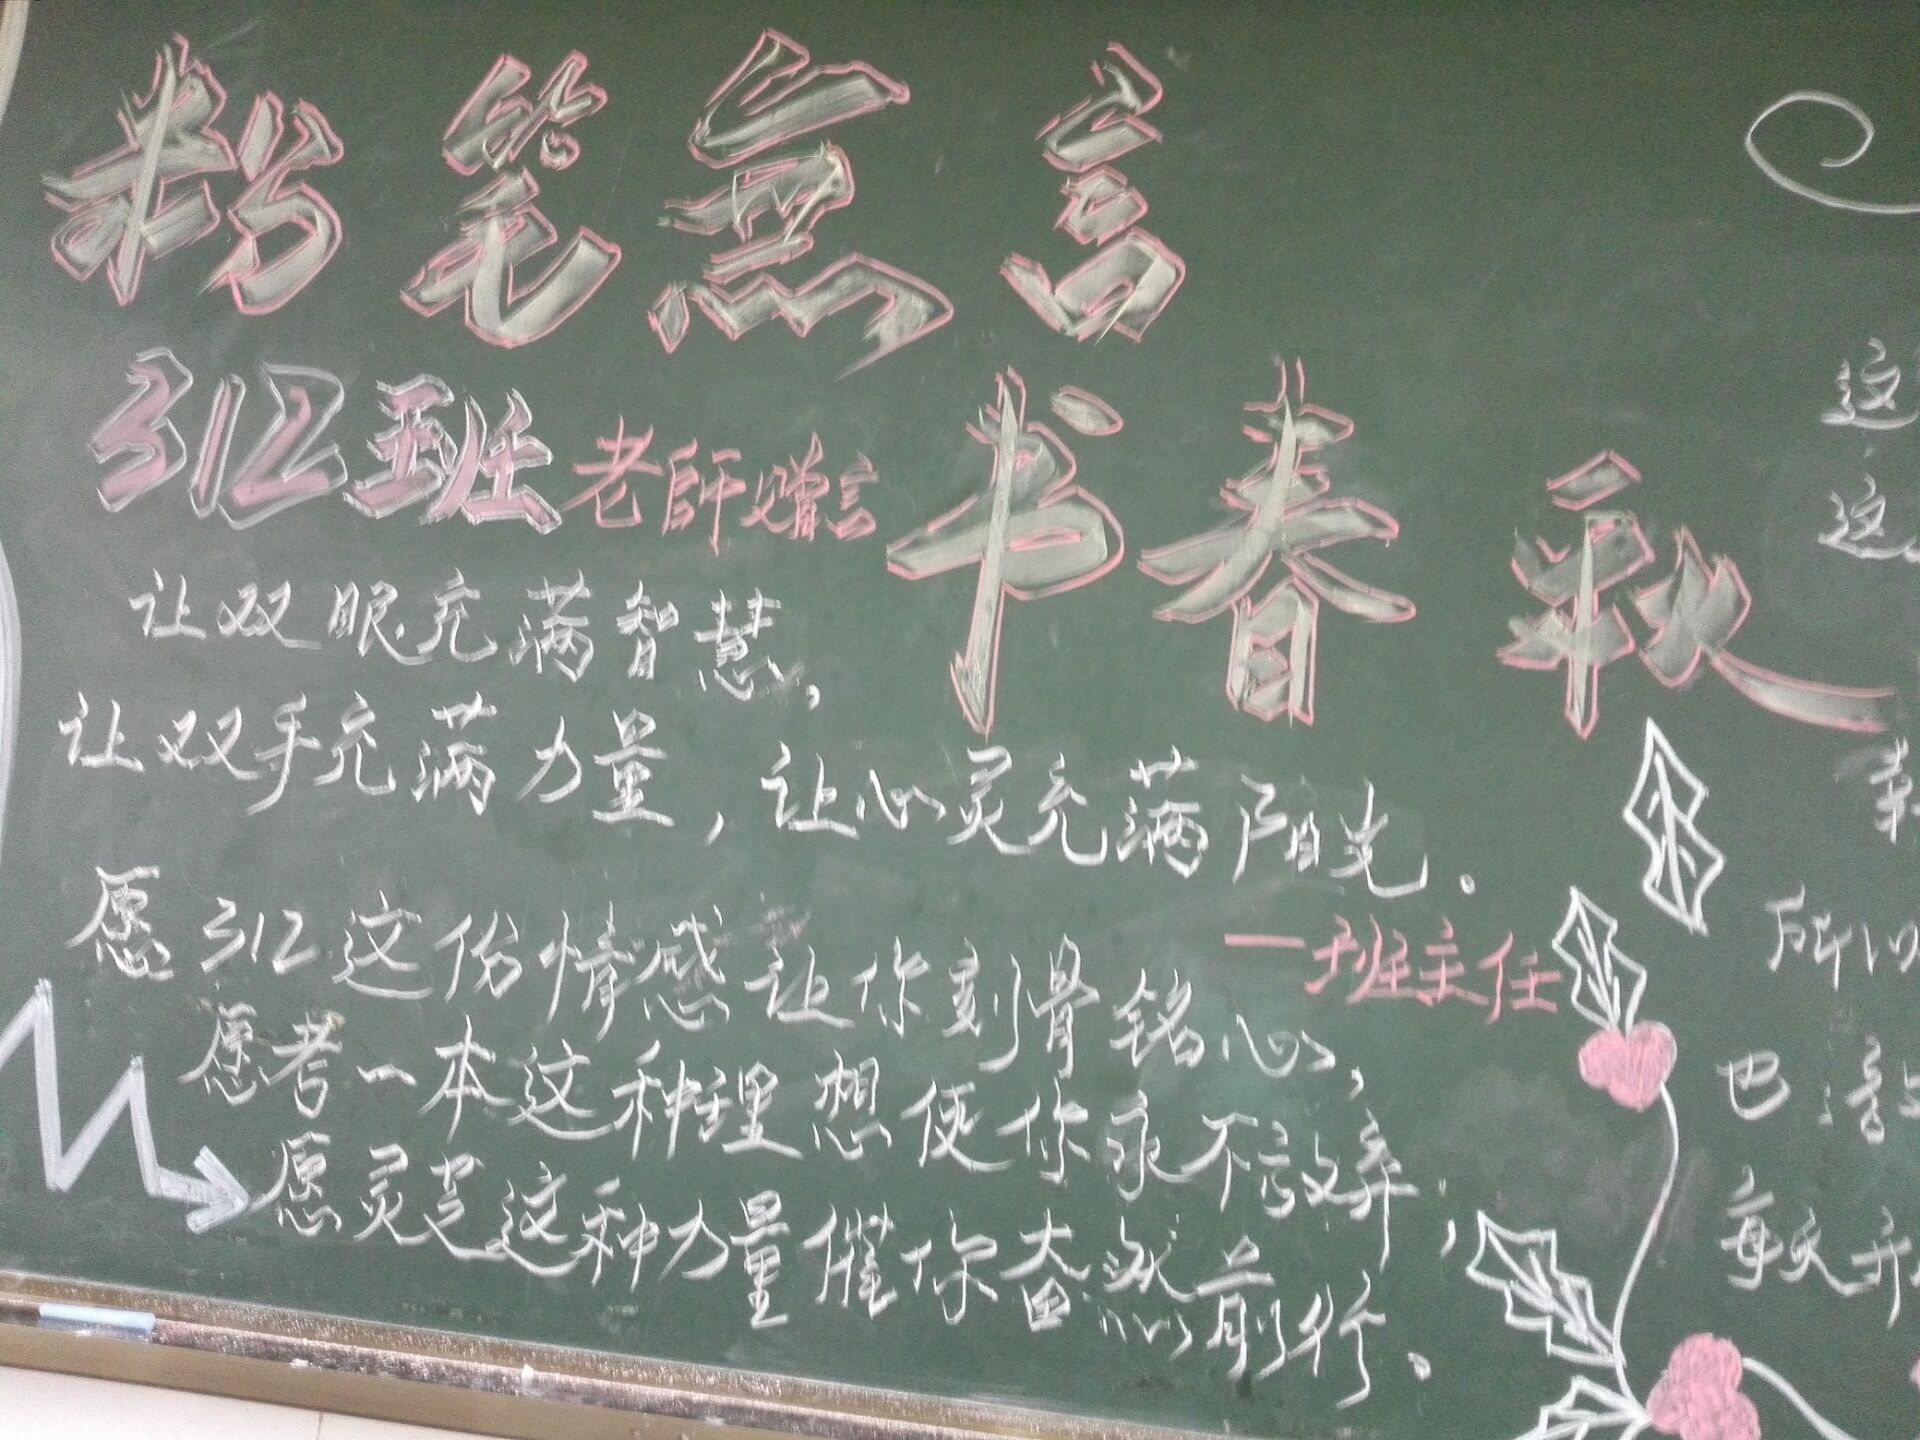 粉笔無言
书春秋
312班老師赠言
让双眼充满智慧，
让双手充满力量，让心灵充满阳光．
一班主任
愿312这份情感让你刻骨铭心，
愿考一本这种理想使你永不放弃；
愿灵芝这种力量催你奋然前行．
这
这
所以
巴
每天开